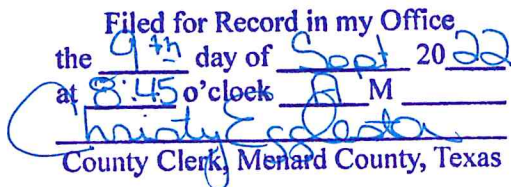 Filed for Record in my Office
the 9th day of Sept 2022
at 8:45 o'clock A M
Christy Eggleston
County Clerk, Menard County, Texas